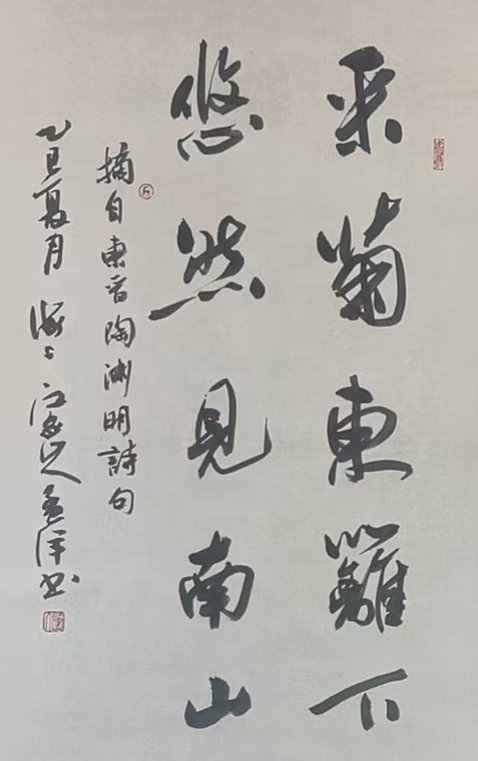 采菊東籬下
悠然見南山
摘自東晋陶渊明詩句
乙巳夏月 海上